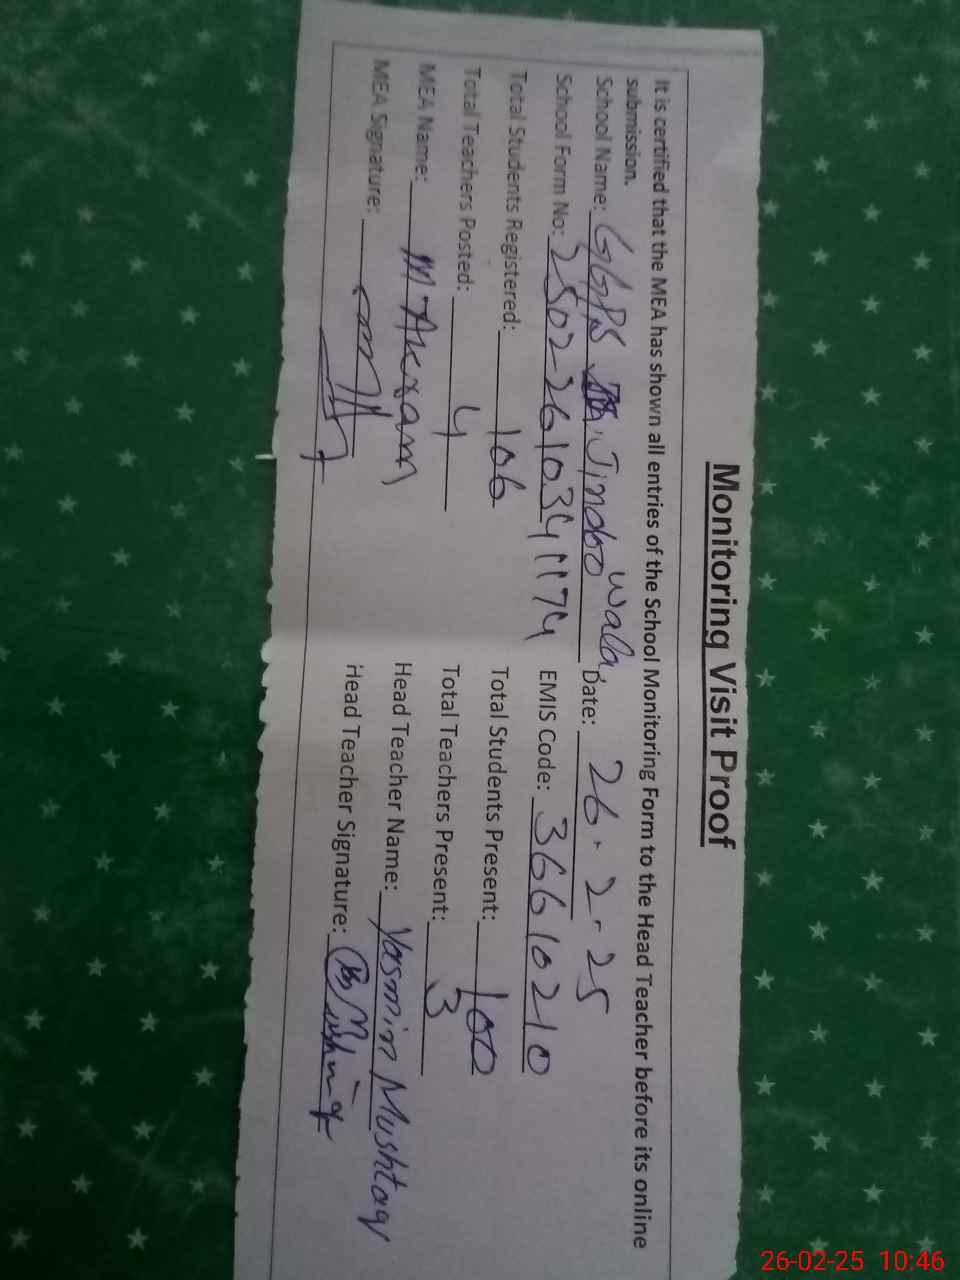 Monitoring Visit Proof
It is certified that the MEA has shown all entries of the School Monitoring Form to the Head Teacher before its online
submission.
School Name: GGPS Jindoo wala Date: 26.2.25
School Form No: 2502-2610341174 EMIS Code: 36610210
Total Students Registered: 106 Total Students Present: 100
Total Teachers Posted: 4 Total Teachers Present: 3
MEA Name: M Akram Head Teacher Name: Yasmin Mushtaq
MEA Signature: Head Teacher Signature:
26-02-25 10:46